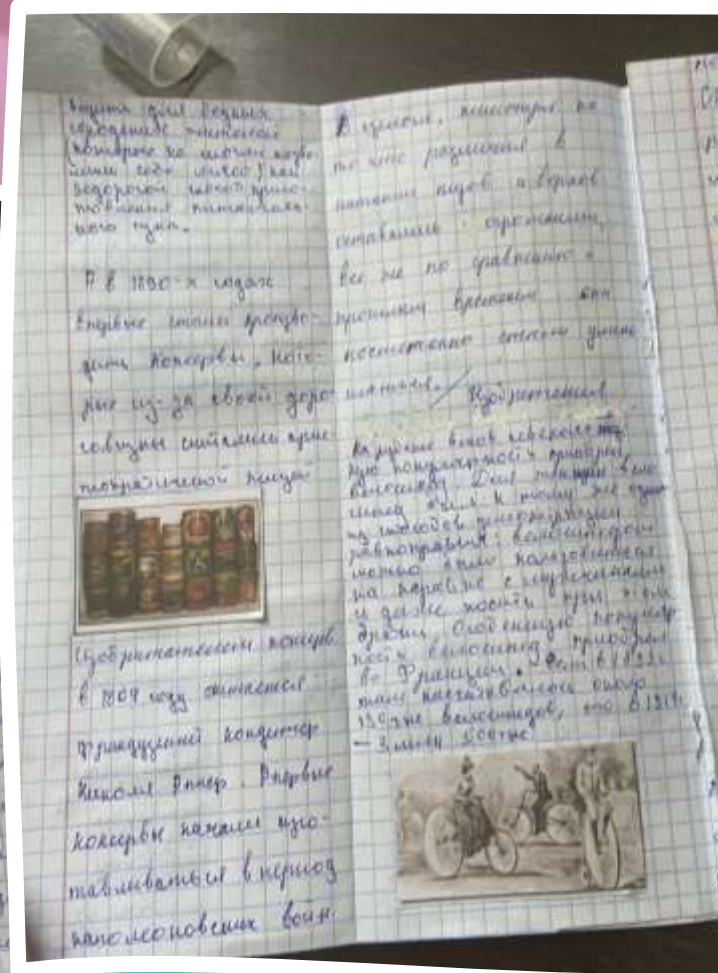 для бедных
городских жителей
(которые не могли позво-
лить себе мясо) как
недорогой способ приго-
товления питатель-
ного супа.
А в 1890-х годах
впервые стали произво-
дить консервы, кото-
рые из-за своей доро-
говизны считались арис-
тократической пищей
Изобретателем консерв
в 1809 году считается
французский кондитер
Николя Аппер. Впервые
консервы начали изго-
тавливаться в период
наполеоновских войн.
В целом, несмотря на
то что различия в
питании низов и верхов
оставались огромными,
все же по сравнению с
прошлым временем они
постепенно стали умень
шаться.
Изобретения
На рубеже веков
популярность приобрел
велосипед. Для женщин вело
сипед был к тому же одним
из способов демонстрации
равноправия: велосипедом
можно было пользоваться
на равных с мужчинами
и даже носить при этом
брюки. Особенную популяр
ность велосипед приобрел
во Франции. Если в 1893г.
там насчитывалось около
130 тыс велосипедов, то в 1914г.
- 3 млн 500 тыс